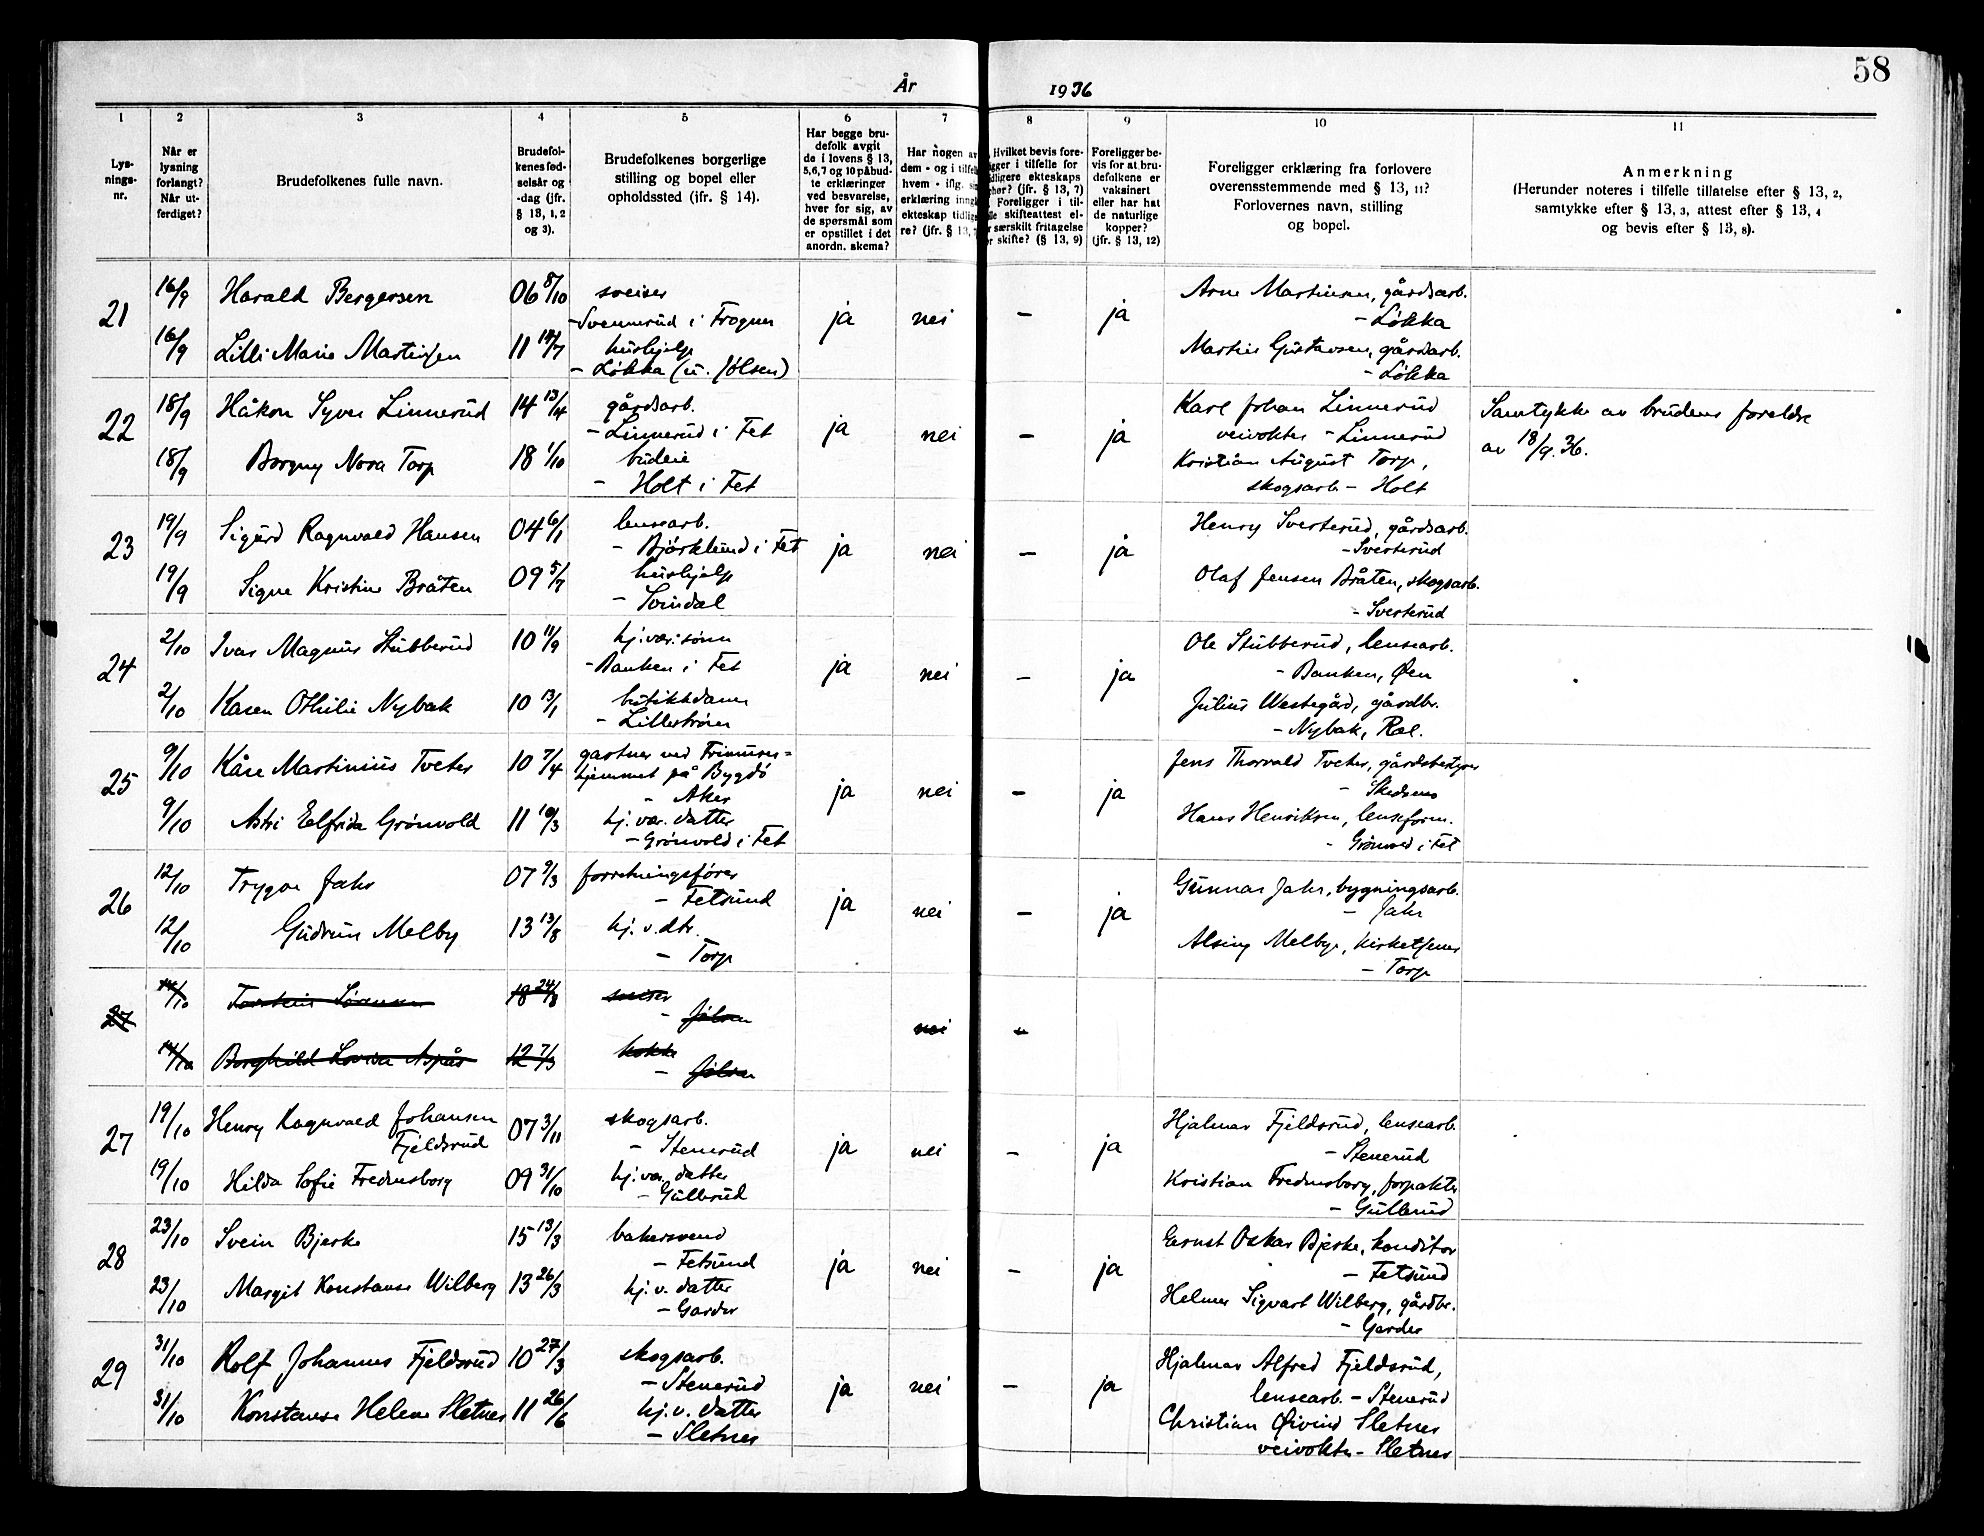 58
År 1936
1 2 3 4 5 6 7 8 9 10 11
Lys-
nings-
nr.
Når er
lysning
forlangt?
Når ut-
ferdiget?
Brudefolkenes fulle navn.
Brudefol-
kenes fød-
selsår og
-dag (jfr.
§ 13, 1, 2
og 3).
Brudefolkenes borgerlige
stilling og bopel eller
opholdssted (jfr. § 14).
Har begge bru-
defolk avgit
de i lovens § 13,
5, 6, 7 og 10 påbud-
te erklæringer
ved besvarelse,
hver for sig, av
de spørsmål som
er opstillet i det
anordn. skema?
Har nogen av
dem - og i tilfelle
hvem - iflg. sin
erklæring inngått
ekteskap tidlige-
re? (jfr. § 13, 7
Hvilket bevis fore-
ligger i tilfelle for
tidligere ekteskaps
(jfr. § 13, 7)
Foreligger i til-
felle skifteattest el-
særskilt fritagelse
skifte? (§ 13, 9)
Foreligger be-
vis for at bru-
defolkene er
vaksinert
eller har hat
de naturlige
kopper?
(jfr. § 13, 12)
Foreligger erklæring fra forlovere
overensstemmende med § 13, 11?
Forlovernes navn, stilling
og bopel.
Anmerkning
(Herunder noteres i tilfelle tillatelse efter § 13, 2,
samtykke efter § 13, 3, attest efter § 13, 4
og bevis efter § 13, 8).
21 16/9 Harald Bergersen 06 8/10 sveiser
- Svennerud i Frogner ja nei - ja
Arne Martinsen, gårdsarb.
- Løkka
16/9 Lilli Marie Martinsen 11 hushjelp
- Løkka (u. Jølsen)
Martin Gustavsen, gårdsarb.
- Løkka
22 18/9 Håkon Syver Linnerud 14 13/4 gårdsarb.
- Linnerud i Fet ja nei - ja
Karl Johan Linnerud
veivokter - Linnerud
Samtykke av brudens foreldre
av 18/9.36.
18/9 Borgny Nora Torp 18 1/10 budeie
- Holt i Fet
Kristian August Torp,
skogsarb - Holt
23 19/9 Sigurd Ragnvald Hansen 04 6/1 lensearb.
- Bjørklund i Fet ja nei - ja
Henry Sverterud, gårdsarb.
- Sverterud
19/9 Signe Kristine Bråten 09 5/7 hushjelp
- Svindal
Olaf Jensen Bråten, skogsarb.
- Sverterud
24 2/10 Ivar Magnus Stubberud 10 11/9 hj.vær. sønn
- Banken i Fet ja nei - ja
Ole Stubberud, lensearb.
- Banken, Øen
2/10 Karen Othilie Nybak 10 13/1 butikkdame
- Lillestrøm
Julius Westgård, gårdbr.
- Nybak, Ræl.
25 9/10 Kåre Martinius Tveter 10 7/4 gartner ved
hjemmet på Bygdö
- Aker ja nei - ja
Jens Thorvald Tveter, gårdsbestyrer
- Skedsmo
9/10 Astri Elfrida Grönvold 11 hj. vær. datter
- Grönvold i Fet
Hans Henriksen, lenseform.
- Grönvold i Fet
26 12/10 Trygve Jahr 07 9/3 forretningsfører
- Fetsund ja nei - ja
Gunnar Jahr, bygningsarb.
- Jahr
12/10 Gudrun Melby 13 13/8 hj. v. dtr.
- Torp
Melby, kirketjener
- Torp
27 14/10 Torstein Sörensen 18 24/8 sveiser
- Jölsen nei
14/10 Borghild Lovise Aspås 12 7/3 kokke
- Jölsen
27 19/10 Henry Ragnvald Johansen
Fjeldsrud 07 3/11 skogsarb.
- Stenerud ja nei - ja
Hjalmar Fjeldsrud, lensearb.
- Stenerud
19/10 Hilda Sofie Fredensborg 09 31/10 hj. vær. datter
- Gullerud
Kristian Fredensborg, forpakter
- Gullerud
28 23/10 Svein Bjerke 15 13/3 bakersvend
- Fetsund ja nei - ja
Ernst Oskar Bjerke, konditor
- Fetsund
23/10 Margit Konstanse Wilberg 13 26/3 hj. v. datter
- Garder
Helmer Sigvart Wilberg, gårdbr.
- Garder
29 31/10 Rolf Johannes Fjeldsrud 10 27/3 skogsarb.
- Stenerud ja nei - ja
Hjalmar Alfred Fjeldsrud,
lensearb. - Stenerud
31/10 Konstanse Helene Sletner 11 26/6 hj. v. datter
- Sletner
Christian Øivind Sletner
veivokter - Sletner